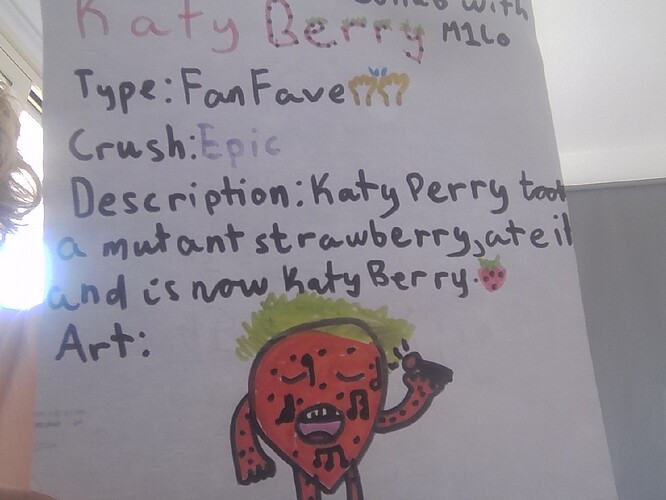 Collab with
Katy Berry M1Lo
Type:FanFave
Crush:Epic
Description:Katy Perry took
a mutant strawberry,ate it
and is now Katy Berry.
Art: